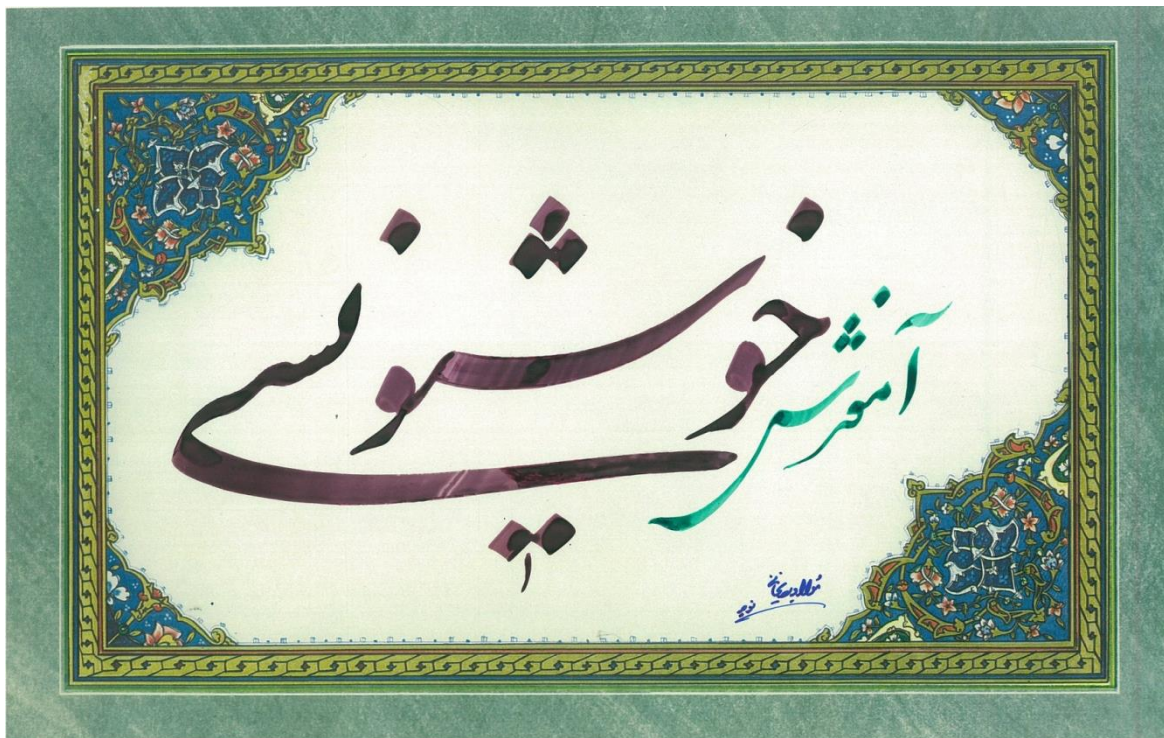 آموزش
خوشنویسی